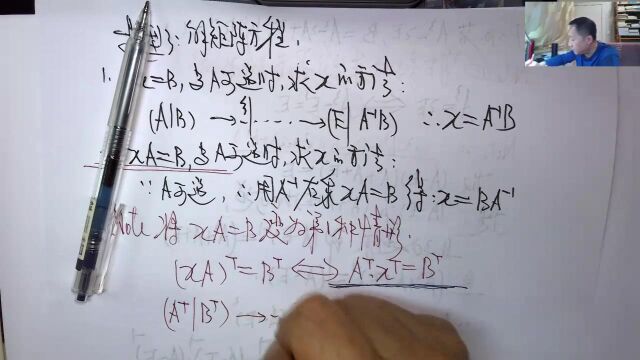 题型3: 解矩阵方程.
1. x=B,当A可逆时,求x的方法:
(A|B) → ····· → (E|A⁻¹B) ∴x=A⁻¹B
xA=B,当A可逆时,求x的方法:
∵A可逆, ∴用A⁻¹右乘xA=B得:x=BA⁻¹
Note 将xA=B变为第1种情形.
(xA)ᵀ=Bᵀ ⟺ Aᵀ·xᵀ=Bᵀ
(Aᵀ|Bᵀ) →